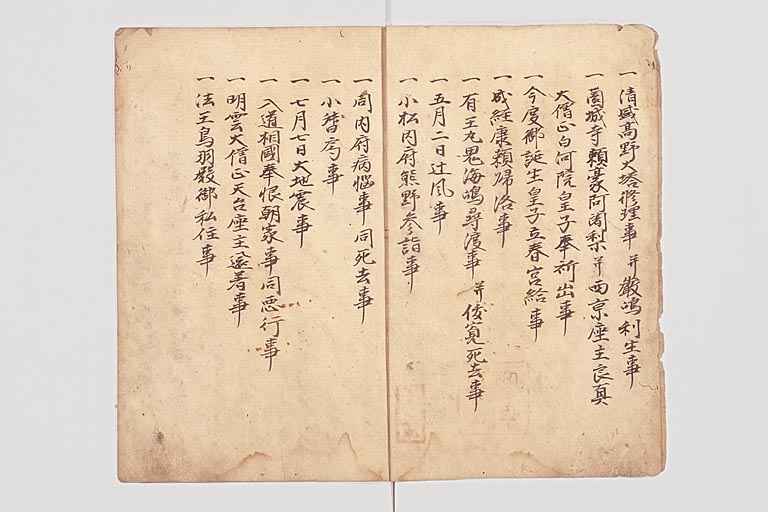 一 清盛高野大塔修理事 并厳嶋利生事
一 薗城寺頼豪阿闍梨 并西京座主良真
大僧正白河院皇子奉祈出事
一 今度御誕生皇子立春宮給事
一 成経康頼帰洛事
一 有王丸鬼海嶋尋渡事 并俊寛死去事
一 五月二日辻風事
一 小松内府熊野参詣事
一 同内府病悩事 同死去事
一 小督局事
一 七月七日大地震事
一 入道相國奉恨朝家事 同悪行事
一 明雲大僧正天台座主還着事
一 法王鳥羽殿御私住事